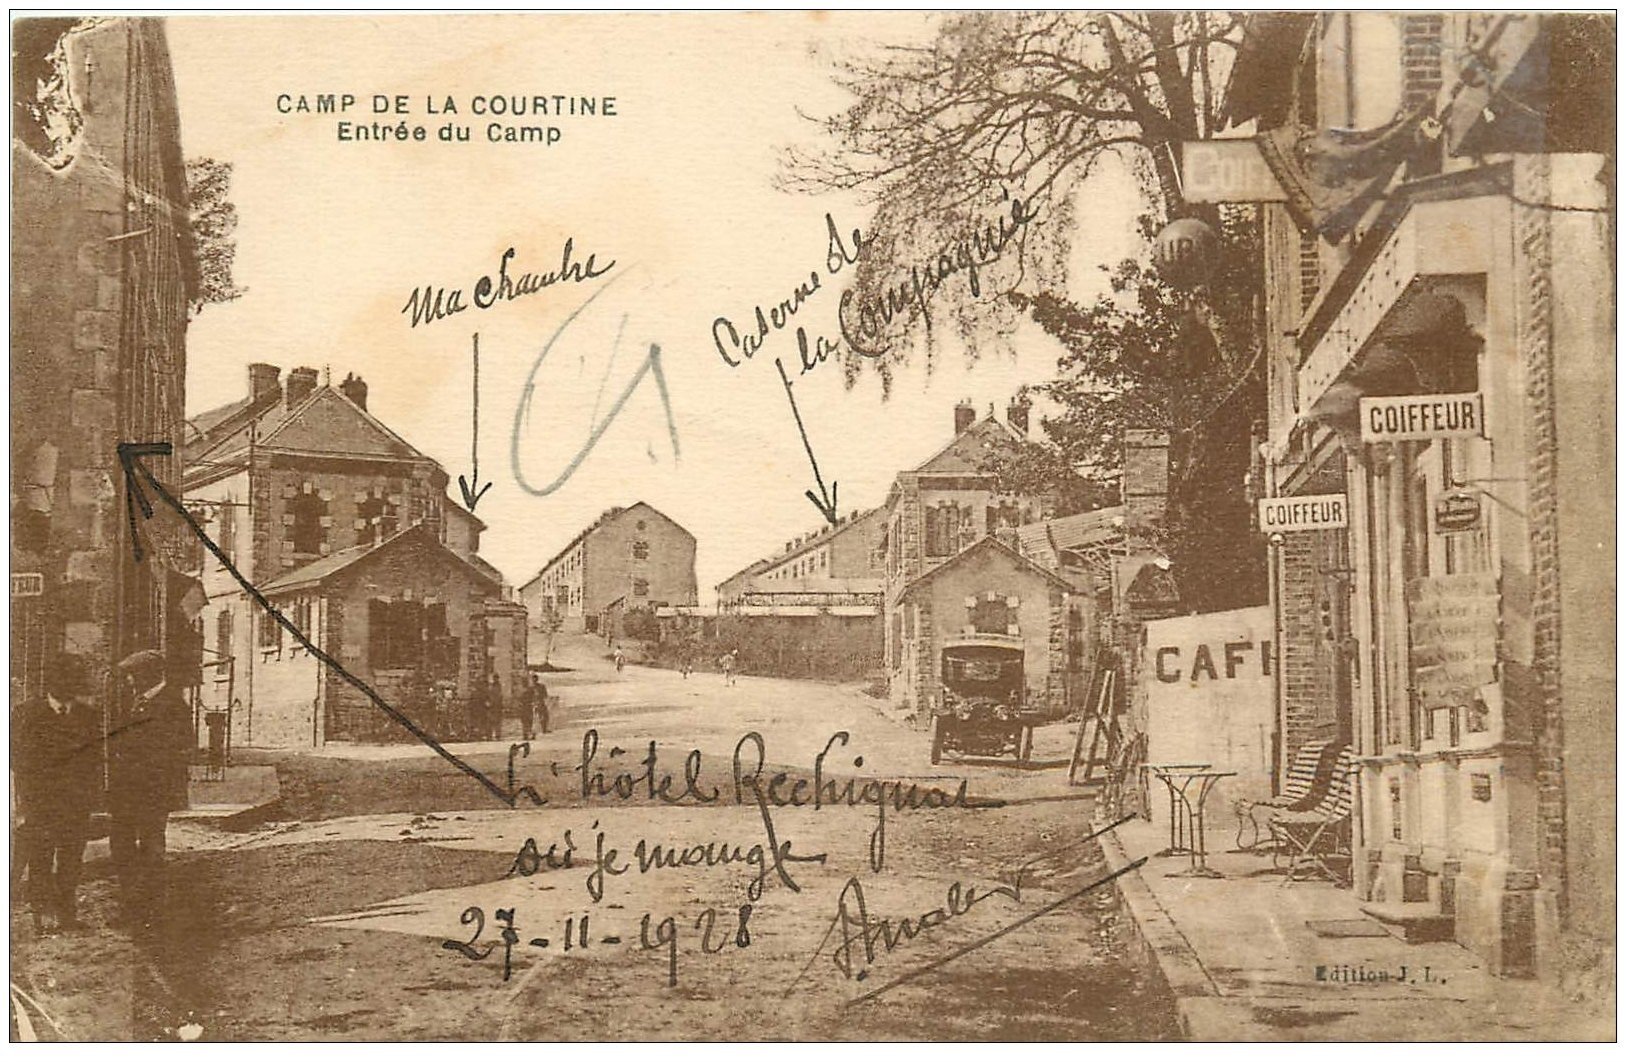 CAMP DE LA COURTINE
Entrée du Camp
Ma chambre
Caserne de
la Compagnie
COIFFEUR
COIFFEUR
CAFE
L'hôtel Rechignat
où je mange
27-11-1928
Edition J. L.